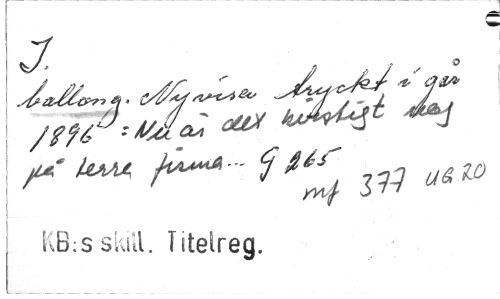 I.
ballong. Ny visa tryckt i går
1896 = Nu är det körstigt nog
på terra firma... G 265
mf 377 UG.20
KB:s skill. Titelreg.